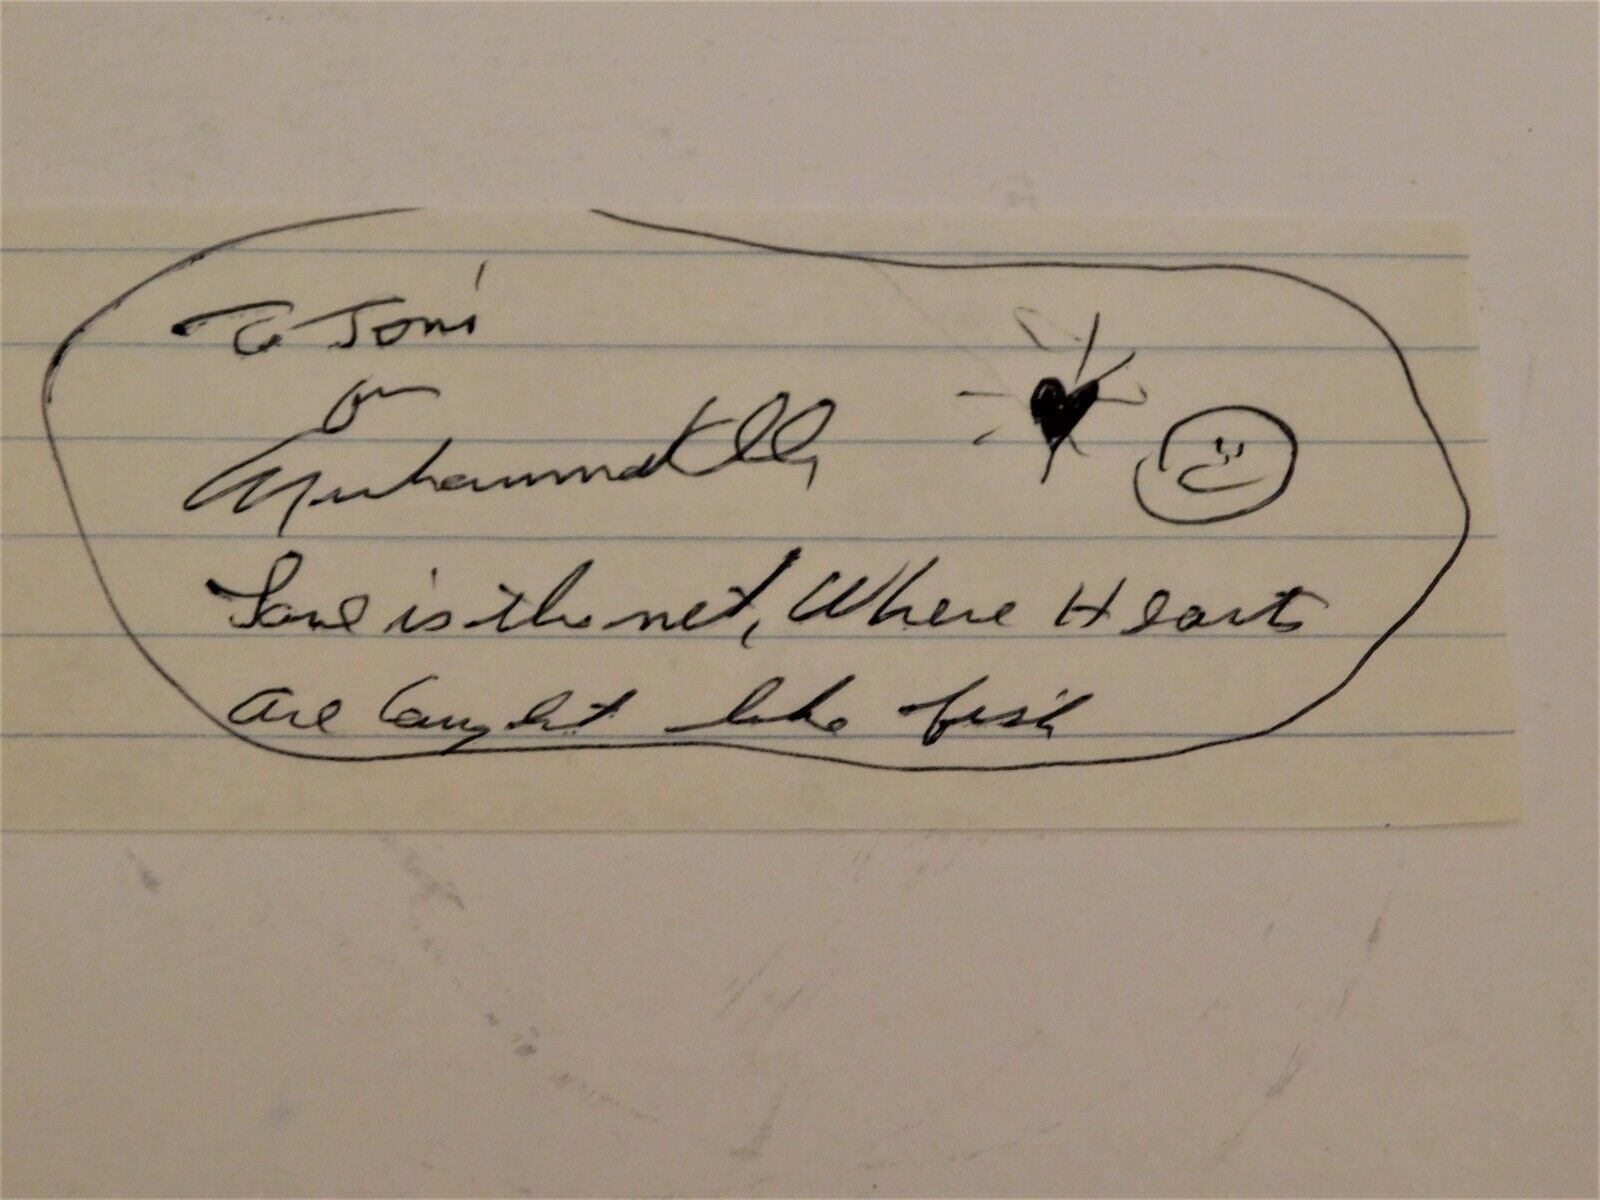 To Joni
From
Muhammad Ali
Love is the net, Where Hearts
are Caught like fish